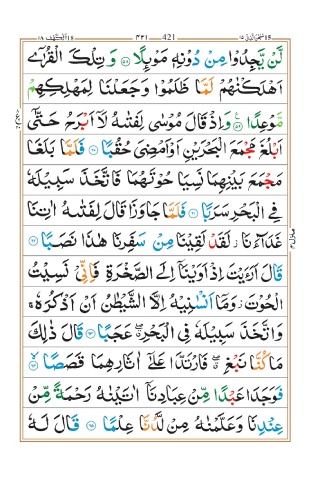 سبحٰن الذی ۱۵ 421 ۴۲۱ الکهف ۱۸
لَّنْ يَّجِدُوْا مِنْ دُوْنِهٖ مَوْىِٕلًا ۝۵۸ وَ تِلْكَ الْقُرٰۤى
اَهْلَكْنٰهُمْ لَمَّا ظَلَمُوْا وَ جَعَلْنَا لِمَهْلِكِهِمْ
مَّوْعِدًا ۝۵۹ وَ اِذْ قَالَ مُوْسٰى لِفَتٰىهُ لَاۤ اَبْرَحُ حَتّٰۤى
اَبْلُغَ مَجْمَعَ الْبَحْرَيْنِ اَوْ اَمْضِيَ حُقُبًا ۝۶۰ فَلَمَّا بَلَغَا
مَجْمَعَ بَيْنِهِمَا نَسِيَا حُوْتَهُمَا فَاتَّخَذَ سَبِيْلَهٗ
فِي الْبَحْرِ سَرَبًا ۝۶۱ فَلَمَّا جَاوَزَا قَالَ لِفَتٰىهُ اٰتِنَا
غَدَآءَنَا ؗ لَقَدْ لَقِيْنَا مِنْ سَفَرِنَا هٰذَا نَصَبًا ۝۶۲
قَالَ اَرَءَيْتَ اِذْ اَوَيْنَاۤ اِلَى الصَّخْرَةِ فَاِنِّيْ نَسِيْتُ
الْحُوْتَ ؗ وَ مَاۤ اَنْسٰىنِيْهُ اِلَّا الشَّيْطٰنُ اَنْ اَذْكُرَهٗ ۚ
وَ اتَّخَذَ سَبِيْلَهٗ فِي الْبَحْرِ ۖۗ عَجَبًا ۝۶۳ قَالَ ذٰلِكَ
مَا كُنَّا نَبْغِ ۖۗ فَارْتَدَّا عَلٰۤى اٰثَارِهِمَا قَصَصًا ۝۶۴
فَوَجَدَا عَبْدًا مِّنْ عِبَادِنَاۤ اٰتَيْنٰهُ رَحْمَةً مِّنْ
عِنْدِنَا وَ عَلَّمْنٰهُ مِنْ لَّدُنَّا عِلْمًا ۝۶۵ قَالَ لَهٗ